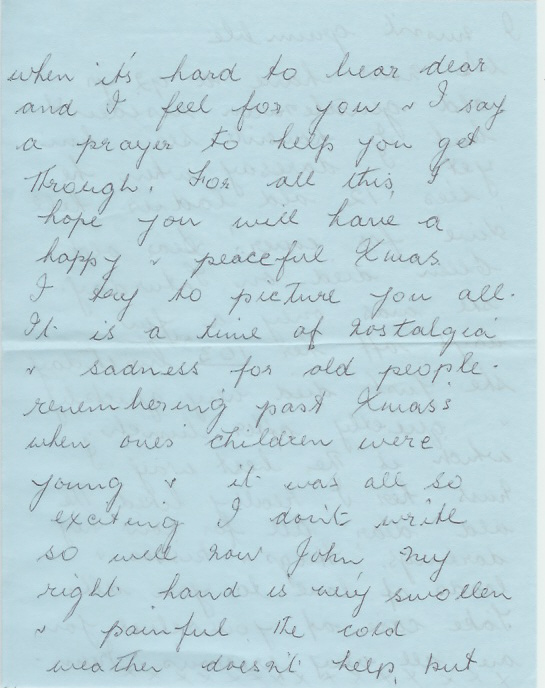 when it's hard to bear dear
and I feel for you & I say
a prayer to help you get
through. For all this, I
hope you will have a
happy & peaceful Xmas
I try to picture you all.
It is a time of nostalgia
& sadness for old people.
remembering past Xmas's
when ones' children were
young & it was all so
exciting I don't write
so well now John my
right hand is very swollen
& painful the cold
weather doesn't help, but